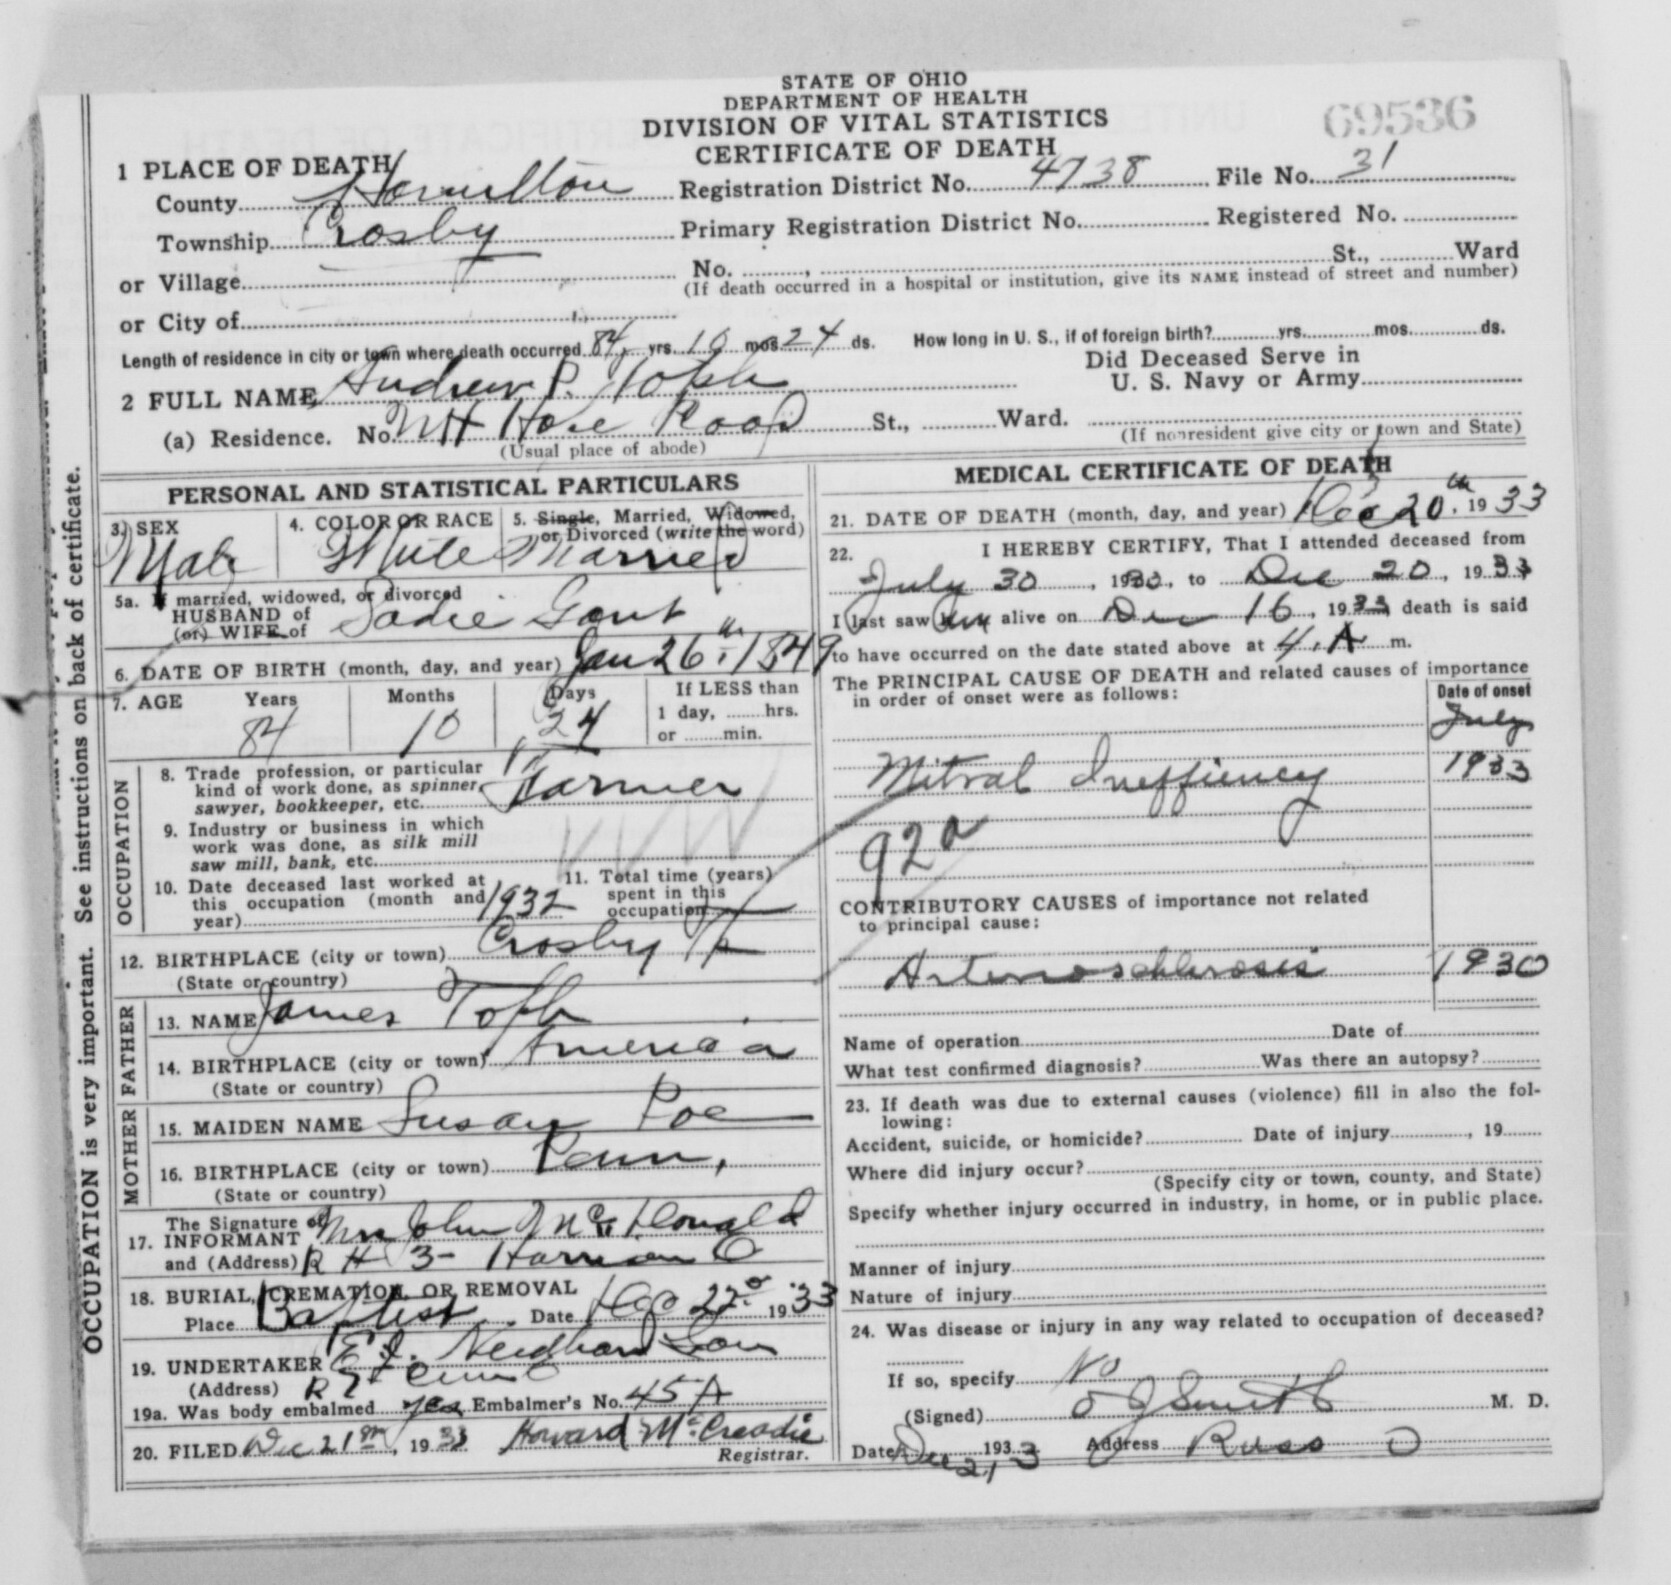 STATE OF OHIO
DEPARTMENT OF HEALTH
DIVISION OF VITAL STATISTICS
CERTIFICATE OF DEATH
69536
1 PLACE OF DEATH
County Hamilton Registration District No. 4738 File No. 31
Township Crosby Primary Registration District No. Registered No.
or Village No. , St., Ward
(If death occurred in a hospital or institution, give its NAME instead of street and number)
or City of
Length of residence in city or town where death occurred 84 yrs. 10 mos 24 ds. How long in U. S., if of foreign birth? yrs. mos. ds.
Did Deceased Serve in
U. S. Navy or Army
2 FULL NAME Andrew P. Toph
(a) Residence. No. Mt Hope Road St., Ward.
(Usual place of abode) (If nonresident give city or town and State)
PERSONAL AND STATISTICAL PARTICULARS
3. SEX Male
4. COLOR OR RACE White
5. Single, Married, Widowed, or Divorced (write the word) Married
5a. If married, widowed, or divorced
HUSBAND of
(or) WIFE of Sadie Gant
6. DATE OF BIRTH (month, day, and year) Jan 26th 1849
7. AGE Years Months Days If LESS than
84 10 24 1 day, hrs.
or min.
OCCUPATION
8. Trade profession, or particular
kind of work done, as spinner,
sawyer, bookkeeper, etc. Farmer
9. Industry or business in which
work was done, as silk mill
saw mill, bank, etc.
10. Date deceased last worked at
this occupation (month and
year) 1932
11. Total time (years)
spent in this
occupation
12. BIRTHPLACE (city or town) Crosby Tp
(State or country)
FATHER
13. NAME James Toph
14. BIRTHPLACE (city or town) America
(State or country)
MOTHER
15. MAIDEN NAME Susan Poe
16. BIRTHPLACE (city or town) Penn,
(State or country)
17. The Signature of
INFORMANT Mrs John McDonald
and (Address) R # 3- Harrison O
18. BURIAL, CREMATION, OR REMOVAL
Place Baptist Date Dec 22d 1933
19. UNDERTAKER Needham Son
(Address)
19a. Was body embalmed yes Embalmer's No. 45 A
20. FILED Dec 21st, 1933 Howard McCreadie
Registrar.
MEDICAL CERTIFICATE OF DEATH
21. DATE OF DEATH (month, day, and year) Dec 20th, 1933
22. I HEREBY CERTIFY, That I attended deceased from
July 30, 1930, to Dec 20, 1933
I last saw him alive on Dec 16, 1933 death is said
to have occurred on the date stated above at 4. A. m.
The PRINCIPAL CAUSE OF DEATH and related causes of importance
in order of onset were as follows:
Date of onset
July
Mitral Ineffiency 1933
92a
CONTRIBUTORY CAUSES of importance not related
to principal cause:
Arterioschlerosis 1930
Name of operation Date of
What test confirmed diagnosis? Was there an autopsy?
23. If death was due to external causes (violence) fill in also the fol-
lowing:
Accident, suicide, or homicide? Date of injury , 19
Where did injury occur?
(Specify city or town, county, and State)
Specify whether injury occurred in industry, in home, or in public place.
Manner of injury
Nature of injury
24. Was disease or injury in any way related to occupation of deceased?
If so, specify No
(Signed) O J Smith M. D.
Date Dec 21, 1933 Address Ross O
OCCUPATION is very important. See instructions on back of certificate.